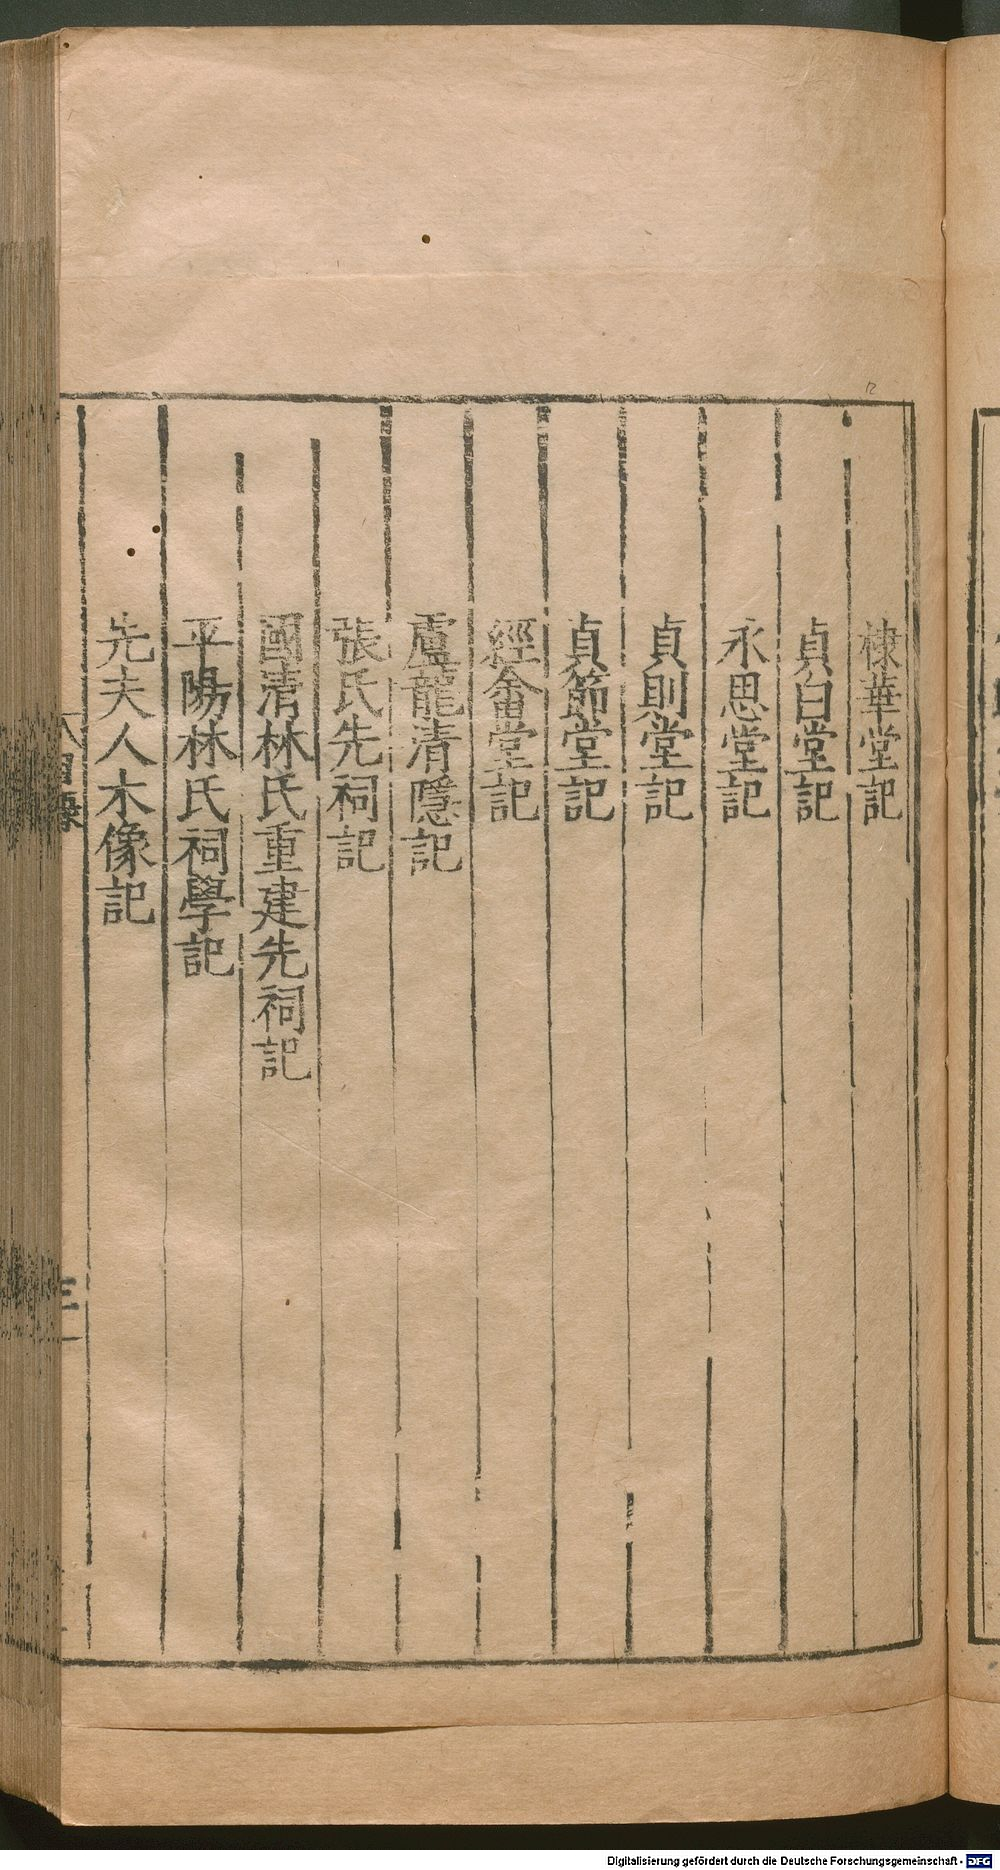 棣華堂記
貞白堂記
永思堂記
貞則堂記
貞節堂記
經畬堂記
盧龍清隱記
張氏先祠記
國清林氏重建先祠記
平陽林氏祠學記
先夫人木像記
目錄
三
Digitalisierung gefördert durch die Deutsche Forschungsgemeinschaft - DFG